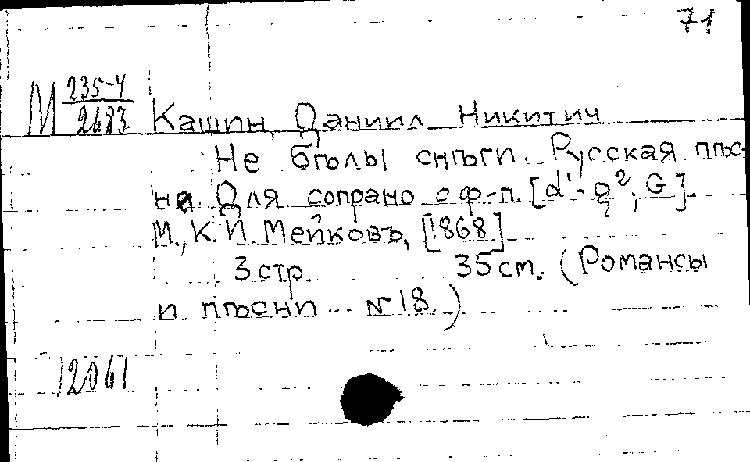 71
М 235-4/2683 Кашин Даниил Никитич
Не бѣлы снѣги. Русская пѣс-
ня. Для сопрано с ф-п. [d¹-g², G].
М., К.И. Мейковъ, [1868]
3 стр. 35 см. (Романсы
и пѣсни .. № 18.)
12061